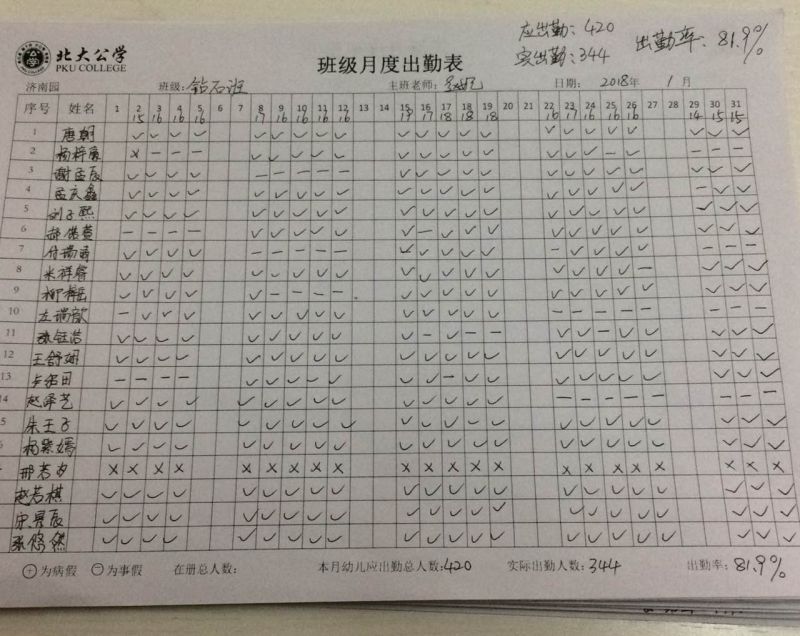 应出勤: 420
实出勤: 344
出勤率: 81.9%
北大公学
PKU COLLEGE
班级月度出勤表
济南园 班级: 钻石班 主班老师: 日期: 2018年 1月
序号 姓名 1 2 3 4 5 6 7 8 9 10 11 12 13 14 15 16 17 18 19 20 21 22 23 24 25 26 27 28 29 30 31
15 16 16 16 17 16 16 16 16 17 17 18 18 18 16 17 16 16 16 14 15 15
1 唐朝 ✓ ✓ ✓ ✓ ✓ ✓ ✓ ✓ ✓ ✓ ✓ ✓ ✓ ✓ ✓ ✓ ✓ ✓ ✓ ✓ ✓ ✓
2 杨梓宸 × — — — ✓ ✓ ✓ ✓ ✓ ✓ ✓ ✓ ✓ ✓ ✓ ✓ ✓ — ✓ ✓ ✓ —
3 谢孟辰 ✓ ✓ ✓ ✓ ✓ — — — — ✓ ✓ ✓ ✓ ✓ ✓ ✓ ✓ ✓ ✓ ✓ ✓ ✓
4 孟庆鑫 ✓ ✓ ✓ ✓ ✓ ✓ ✓ ✓ ✓ ✓ ✓ ✓ ✓ ✓ ✓ ✓ ✓ ✓ ✓ — ✓ ✓
5 刘子熙 ✓ ✓ ✓ ✓ ✓ ✓ ✓ ✓ ✓ ✓ ✓ ✓ ✓ ✓ ✓ ✓ ✓ ✓ ✓ ✓ ✓ ✓
6 — — — — ✓ ✓ ✓ ✓ ✓ ✓ — ✓ ✓ ✓ ✓ ✓ ✓ ✓ ✓ — ✓ ✓
7 ✓ ✓ ✓ ✓ — — — — — ✓ ✓ ✓ ✓ ✓ — — — — — — — —
8 米祥睿 ✓ ✓ ✓ ✓ ✓ ✓ ✓ ✓ ✓ ✓ ✓ ✓ ✓ ✓ ✓ ✓ ✓ ✓ — ✓ ✓ ✓
9 ✓ ✓ ✓ ✓ ✓ — — — — ✓ ✓ ✓ ✓ ✓ ✓ ✓ ✓ ✓ ✓ ✓ ✓ ✓
10 左瑞歆 — ✓ ✓ ✓ ✓ ✓ ✓ ✓ ✓ ✓ ✓ ✓ ✓ ✓ — — — — — — — —
11 张钰浩 ✓ ✓ ✓ ✓ ✓ ✓ ✓ ✓ ✓ ✓ — ✓ — — ✓ ✓ — ✓ ✓ ✓ ✓ ✓
12 王舒娴 ✓ ✓ ✓ ✓ ✓ ✓ ✓ ✓ ✓ ✓ ✓ ✓ ✓ ✓ ✓ ✓ ✓ ✓ ✓ ✓ ✓ ✓
13 卢绍田 — — — — ✓ ✓ ✓ ✓ ✓ ✓ ✓ — ✓ ✓ ✓ ✓ ✓ ✓ ✓ ✓ ✓ ✓
14 赵泽艺 ✓ ✓ ✓ ✓ ✓ ✓ ✓ ✓ ✓ ✓ ✓ ✓ ✓ ✓ — — — — — — — —
5 朱王子 ✓ ✓ ✓ ✓ ✓ ✓ ✓ ✓ ✓ ✓ ✓ ✓ ✓ ✓ ✓ ✓ ✓ ✓ ✓ ✓ ✓ ✓
杨紫嫣 ✓ ✓ ✓ ✓ ✓ ✓ ✓ ✓ ✓ ✓ ✓ ✓ ✓ ✓ ✓ ✓ ✓ ✓ ✓ ✓ ✓ ✓
邢若夕 × × × × × × × × × × × × × × × × × × × × × ×
赵若棋 ✓ ✓ ✓ ✓ ✓ ✓ ✓ ✓ ✓ ✓ ✓ ✓ ✓ ✓ ✓ ✓ ✓ ✓ ✓ ✓ ✓ ✓
宋昱辰 ✓ ✓ ✓ ✓ ✓ ✓ ✓ ✓ ✓ ✓ ✓ ✓ ✓ ✓ ✓ ✓ ✓ ✓ ✓ ✓ ✓ ✓
张悠然 ✓ ✓ ✓ ✓ ✓ ✓ ✓ ✓ ✓ ✓ ✓ ✓ ✓ ✓ ✓ ✓ ✓ ✓ ✓ ✓ ✓ ✓
⊕为病假 ⊖为事假 在册总人数: 本月幼儿应出勤总人数: 420 实际出勤人数: 344 出勤率: 81.9%